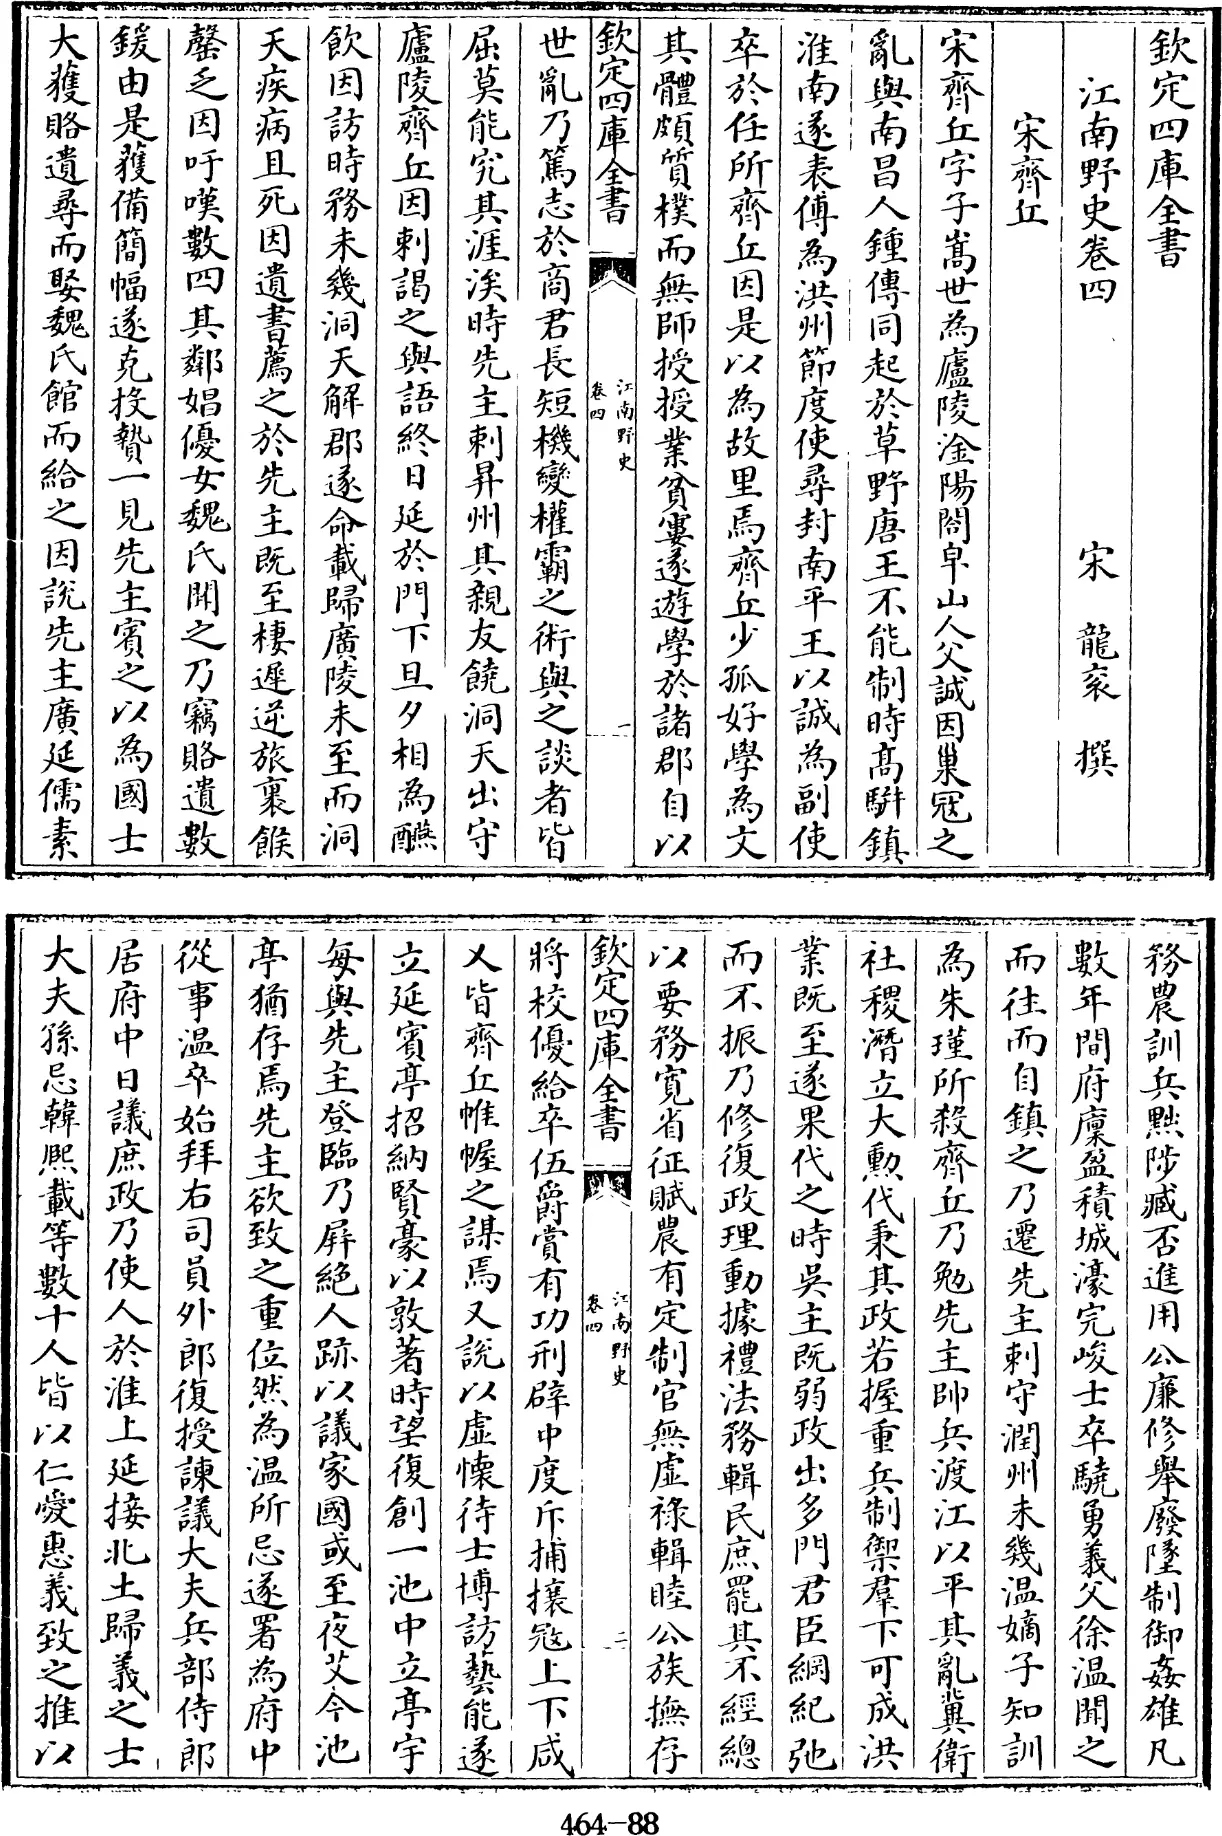 欽定四庫全書
江南野史卷四
宋 龍衮 撰
宋齊丘
宋齊丘字子嵩世為廬陵淦陽閤皁山人父誠因巢冦之
亂與南昌人鍾傳同起於草野唐王不能制時髙駢鎮
淮南遂表傳為洪州節度使尋封南平王以誠為副使
卒於任所齊丘因是以為故里焉齊丘少孤好學為文
其體頗質樸而無師授授業貧寠遂遊學於諸郡自以
欽定四庫全書
江南野史
卷四
一
世亂乃篤志於商君長短機變權霸之術與之談者皆
屈莫能究其涯涘時先主刺昇州其親友饒洞天出守
廬陵齊丘因刺謁之與語終日延於門下旦夕相為醼
飲因訪時務未幾洞天解郡遂命載歸廣陵未至而洞
天疾病且死因遺書薦之於先主既至棲遲逆旅裹餱
罄乏因吁嘆數四其鄰娼優女魏氏聞之乃竊賂遺數
鍰由是獲備簡幅遂克投贄一見先主賓之以為國士
大獲賂遺尋而娶魏氏館而給之因說先主廣延儒素
務農訓兵黜陟臧否進用公廉修舉廢墜制御姦雄凡
數年間府廩盈積城濠完峻士卒驍勇義父徐溫聞之
而往而自鎮之乃遷先主刺守潤州未幾溫嫡子知訓
為朱瑾所殺齊丘乃勉先主帥兵渡江以平其亂冀衛
社稷潛立大勲代秉其政若握重兵制禦羣下可成洪
業既至遂果代之時吳主既弱政出多門君臣綱紀弛
而不振乃修復政理動據禮法務輯民庶罷其不經總
以要務寛省征賦農有定制官無虛祿輯睦公族撫存
欽定四庫全書
江南野史
卷四
二
將校優給卒伍爵賞有功刑辟中度斥捕攘冦上下咸
乂皆齊丘帷幄之謀焉又說以虛懷待士博訪藝能遂
立延賓亭招納賢豪以敦著時望復創一池中立亭宇
每與先主登臨乃屏絶人跡以議家國或至夜艾今池
亭猶存焉先主欲致之重位然為溫所忌遂署為府中
從事溫卒始拜右司員外郎復授諫議大夫兵部侍郎
居府中日議庶政乃使人於淮上延接北土歸義之士
大夫孫忌韓熙載等數十人皆以仁愛惠義致之推以
464-88